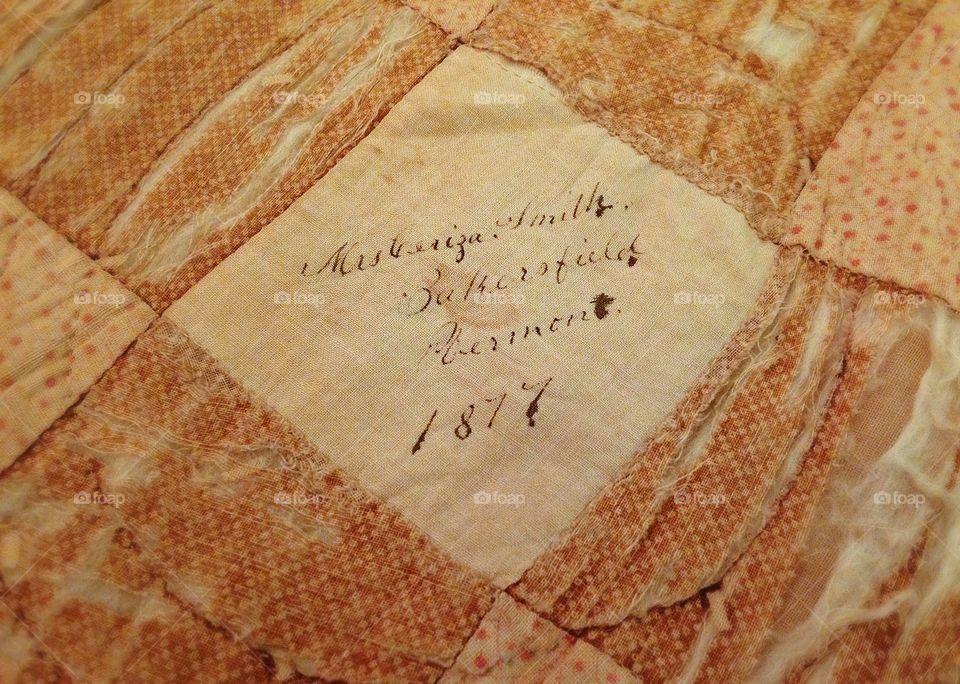 foap foap foap foap foap
Mrs Smith.
Bakersfield
foap foap foap foap foap
Vermont.
1877
foap foap foap foap foap